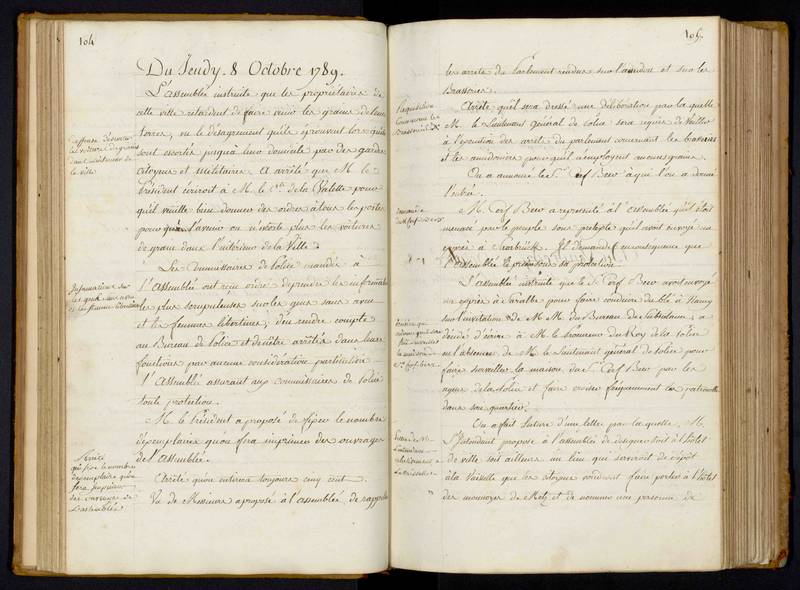 104
Du Jeudy 8 Octobre 1789.
L'assemblée instruite que les propriétaires de
cette ville retardent de faire venir les grains de leurs
terres, vu le désagrément qu'ils éprouvent lorsqu'ils
sont escortés jusqu'à leur domicile par des gardes
citoyens et militaires a arrêté que M. le
Président écriroit à M. le Ch.er de la Valette pour
qu'il veuille bien donner des ordres à tous les postes
pour qu'à l'avenir on n'escorte plus les voitures
de grain dans l'intérieur de la Ville.
Les Commissaires de Police mandés à
l'assemblée ont reçu ordre de prendre les informations
les plus scrupuleuses sur les gens sans aveu
et les femmes libertines, d'en rendre compte
au Bureau de Police et de n'être arrêtés dans leurs
fonctions par aucune considération particuliere
l'Assemblée assurant aux commissaires de Police
toute protection.
M. le Président a proposé de fixer le nombre
d'exemplaires qu'on fera imprimer des ouvrages
de l'assemblée.
Arrêté qu'on en tirera toujours cinq cent.
Un de Messieurs a proposé à l'assemblée de rappeller
de voiture de grains
dans l'intérieur de
la ville
Informations sur
les gens sans aveu
et les femmes libertines
Arrêté
qui fixe le nombre
d'exemplaires qu'on
fera imprimer
des ouvrages de
l'assemblée
105.
les arrêts du Parlement rendus sur l'amidon et sur les
Brasseries.
Arrêté qu'il sera dressé une délibération par laquelle
M. le Lieutenant Général de Police sera requis de veiller
à l'exécution des arrêts du parlement concernant les brasseries
et les amidonniers pour qu'ils n'employent aucuns grains.
On a annoncé le S.r Cerf Beer à qui l'on a donné
l'entrée.
M. Cerf Beer a représenté à l'assemblée qu'il étoit
menacé par le peuple sous prétexte qu'il avoit envoyé un
exprès à Sarrebrück. Il demande en conséquence que
l'assemblée le prenne sous sa protection.
L'assemblée instruite que le S.r Cerf Beer avoit envoyé
un exprès à Saralbe pour faire conduire du blé à Nancy
sur l'invitation de M.M. du Bureau des Subsistances, a
décidé d'écrire à M. le Procureur du Roy de la Police
en l'absence de M. le Lieutenant général de Police pour
faire surveiller la maison du S.r Cerf Beer par les
agens de la Police et faire croiser fréquemment les patrouilles
dans son quartier.
On a fait lecture d'une lettre par laquelle M.
l'Intendant propose à l'assemblée de désigner soit à l'hôtel
de ville soit ailleurs un lieu qui serviroit de dépôt
à la vaisselle que les citoyens voudront faire porter à l'hôtel
des monnoyes de Metz et de nommer une personne de
Réquisition
concernant les
Brasseries &
Demande
de M. Cerf Beer
Lettre de M.
l'Intendant
relativement à
la vaisselle